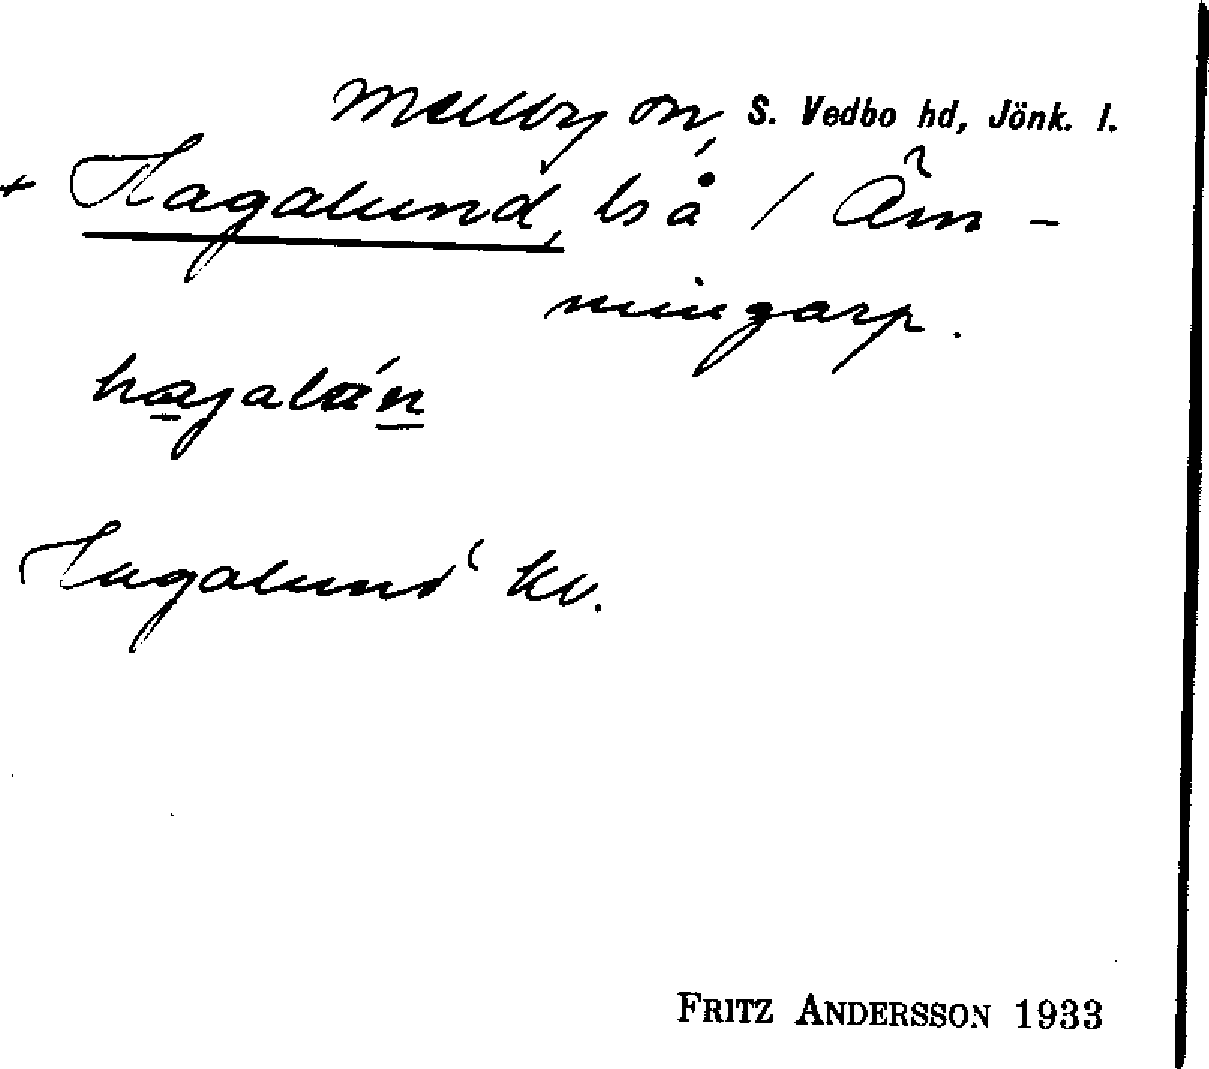 Mellby sn, S. Vedbo hd, Jönk. l.
+ Hagalund, bså / Äm-
mingarp.
hagalún
Hagalund kv.
FRITZ ANDERSSON 1933